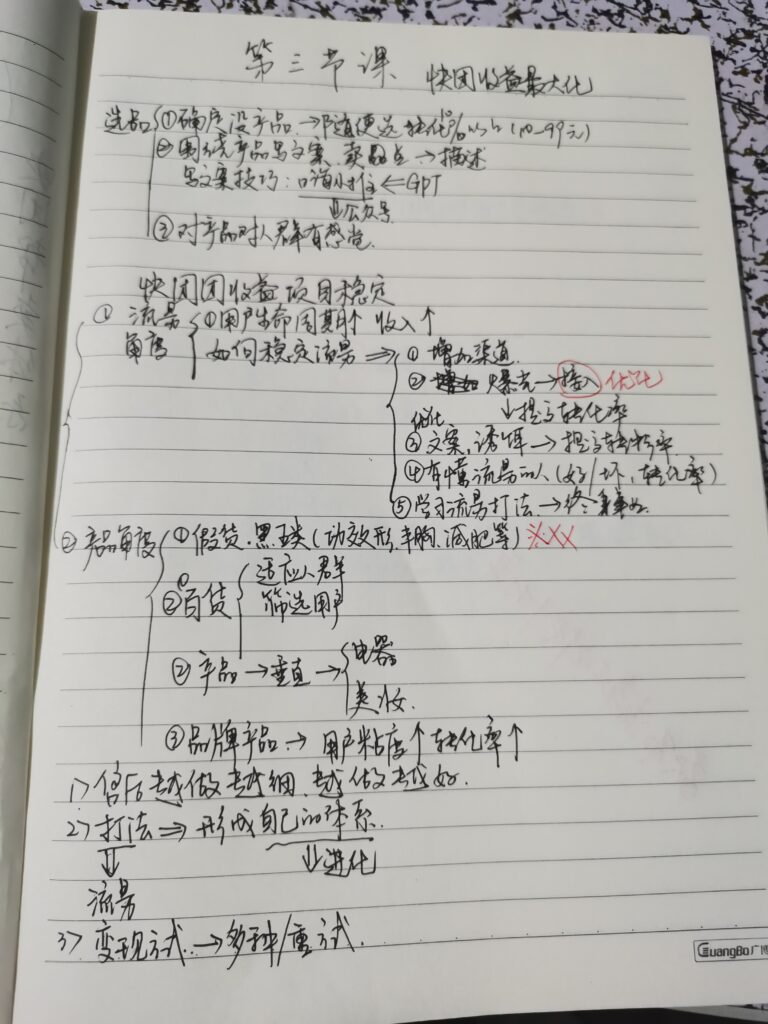 第三节课 快团收益最大化
选品 ①确定没产品 → 随便选 转化% (10-99元)
②围绕产品写文案 卖点 → 描述
写文案技巧: ⇐ GPT
⇓公众号
③对产品对人群有感觉
快团团收益项目稳定
① 流量角度 ①用户生命周期↑ 收入↑
如何稳定流量 ⇒ ①增加渠道
② 爆 → 接入 优化
↓提高转化率
优化
③文案,诱饵 → 提高转粉率
④有懂流量的人(好/坏,转化率)
⑤学习流量打法 → 终
② 产品角度 ①假货.黑五类(功效形.丰胸.减肥等) XXX
②百货 适应人群
筛选用户
②产品 → 垂直 → 电器
美妆
③品牌产品 → 用户粘度↑ 转化率↑
1> 越做越细.越做越好.
2> 打法 ⇒ 形成自己的体系.
⇓ ⇓进化
流量
3> 变现方式 → 多种/重方式.
GuangBo广博